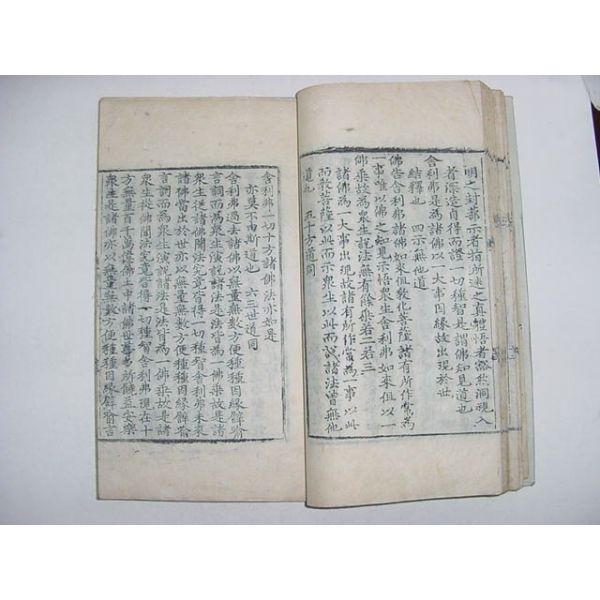 明之對蔀示者指所迷之真體悟者豁然洞視入
者深造自得而證一切種智是謂佛知見道也
舍利弗是為諸佛以一大事因緣故出現於世
結釋也　四示無他道
佛告舍利弗諸佛如來但教化菩薩諸有所作常為
一事唯以佛之知見示悟衆生舍利弗如來但以一
佛乘故為衆生說法無有餘乘若二若三
諸佛為一大事出現故諸有所作常為一事以此
而教菩薩以此而示衆生以此而說諸法曾無他
道也　五十方道同
舍利弗一切十方諸佛法亦如是
亦莫不由斯道也　六三世道同
舍利弗過去諸佛以無量無數方便種種因緣譬喻
言詞而為衆生演說諸法是法皆為一佛乘故是諸
衆生從諸佛聞法究竟皆得一切種智舍利弗未來
諸佛當出於世亦以無量無數方便種種因緣譬喻
言詞而為衆生演說諸法是法皆為一佛乘故是諸
衆生從佛聞法究竟皆得一切種智舍利弗現在十
方無量百千萬億佛土中諸佛世尊多所饒益安樂
衆生是諸佛亦以無量無數方便種種因緣譬喻言